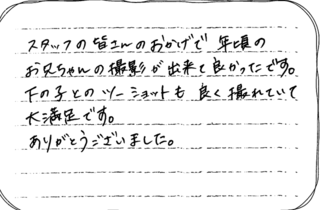 スタッフの皆さんのおかげで 年頃の
お兄ちゃんの撮影が出来て良かったです。
下の子とのツーショットも 良く撮れていて
大満足です。
ありがとうございました。